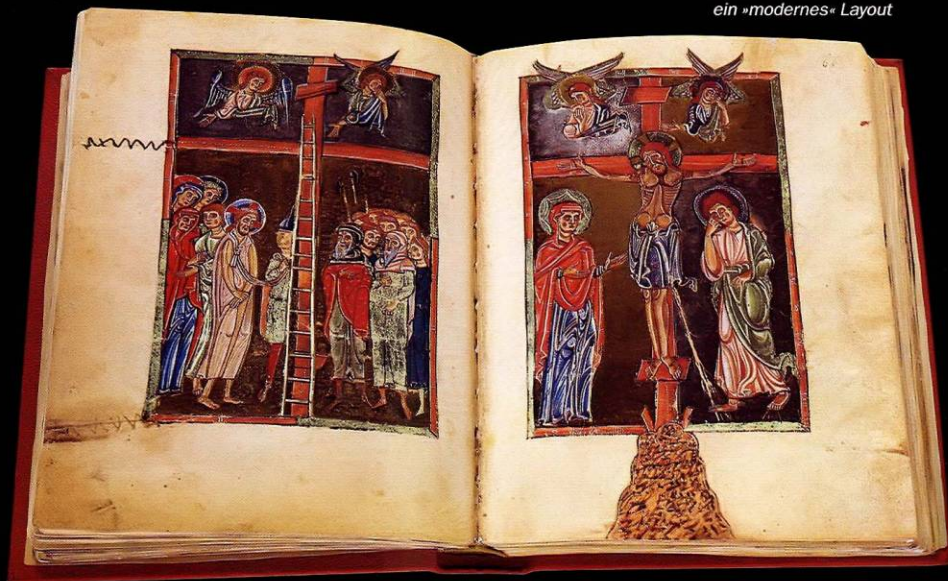 ein »modernes« Layout